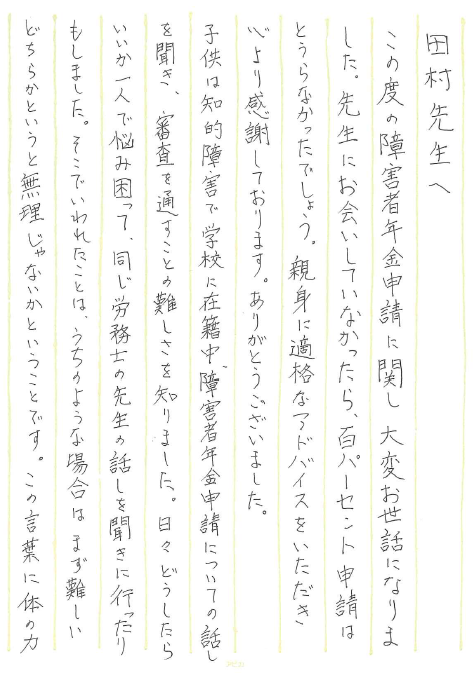 田村先生へ
この度の障害者年金申請に関し大変お世話になりま
した。先生にお会いしていなかったら、百パーセント申請は
とうらなかったでしょう。親身に適格なアドバイスをいただき
心より感謝しております。ありがとうございました。
子供は知的障害で学校に在籍中、障害者年金申請についての話し
を聞き、審査を通すことの難しさを知りました。日々どうしたら
いいか一人で悩み困って、同じ労務士の先生の話しを聞きに行ったり
もしました。そこでいわれたことは、うちのような場合はまず難しい
どちらかというと無理じゃないかということです。この言葉に体の力